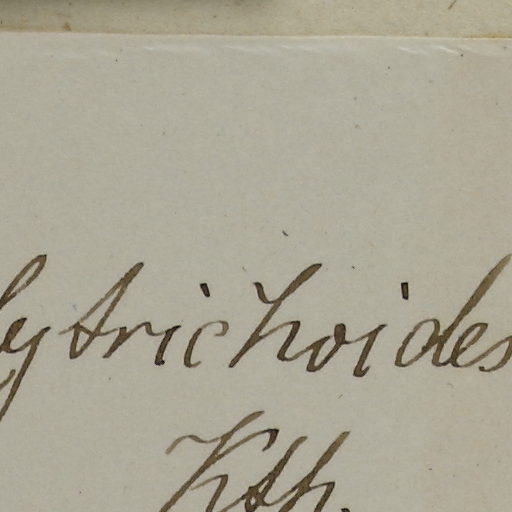 lytrichoides
Kth.